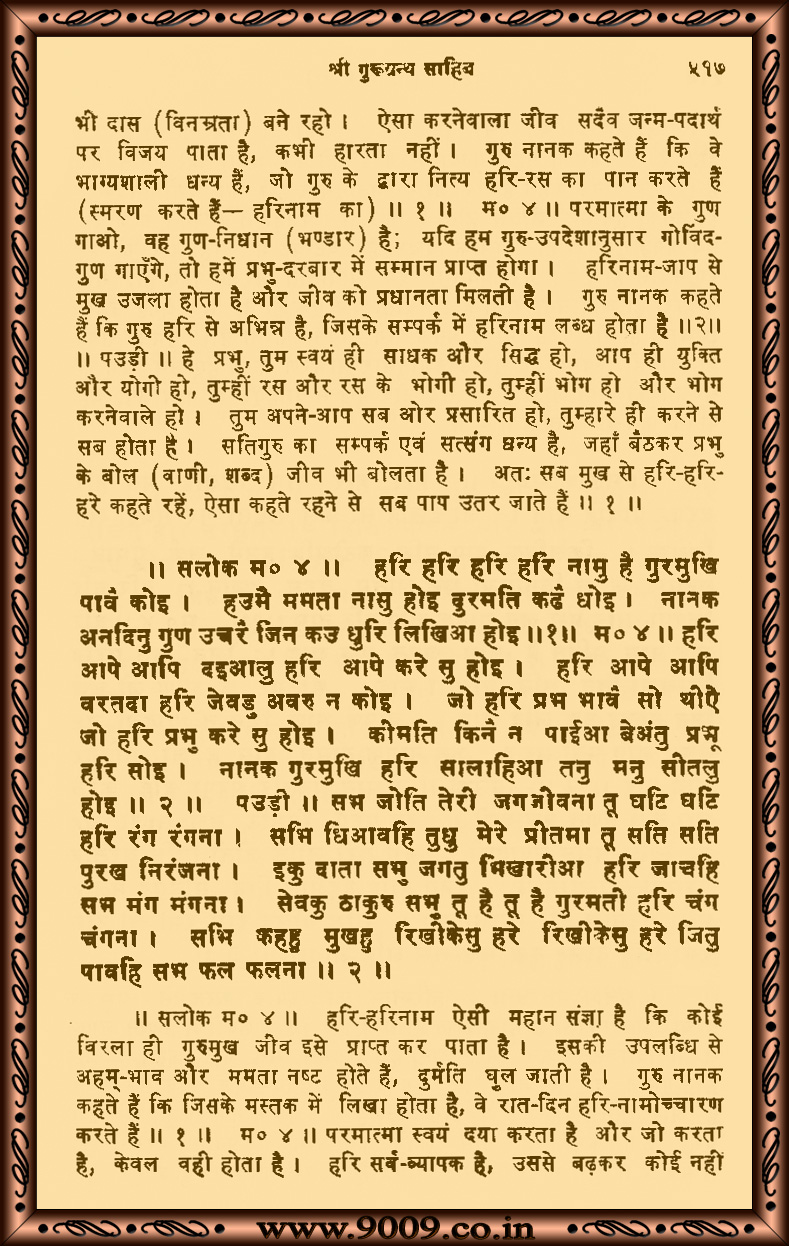 श्री गुरूग्रन्थ साहिब ५१७
भी दास (विनम्रता) बने रहो । ऐसा करनेवाला जीव सदैव जन्म-पदार्थ
पर विजय पाता है, कभी हारता नहीं । गुरु नानक कहते हैं कि वे
भाग्यशाली धन्य हैं, जो गुरु के द्वारा नित्य हरि-रस का पान करते हैं
(स्मरण करते हैं— हरिनाम का) ॥ १ ॥ म० ४ ॥ परमात्मा के गुण
गाओ, वह गुण-निधान (भण्डार) है; यदि हम गुरु-उपदेशानुसार गोविंद-
गुण गाएँगे, तो हमें प्रभु-दरबार में सम्मान प्राप्त होगा । हरिनाम-जाप से
मुख उजला होता है और जीव को प्रधानता मिलती है । गुरु नानक कहते
हैं कि गुरु हरि से अभिन्न है, जिसके सम्पर्क में हरिनाम लब्ध होता है ॥२॥
॥ पउड़ी ॥ हे प्रभु, तुम स्वयं ही साधक और सिद्ध हो, आप ही युक्ति
और योगी हो, तुम्हीं रस और रस के भोगी हो, तुम्हीं भोग हो और भोग
करनेवाले हो । तुम अपने-आप सब ओर प्रसारित हो, तुम्हारे ही करने से
सब होता है । सतिगुरु का सम्पर्क एवं सत्संग धन्य है, जहाँ बैठकर प्रभु
के बोल (वाणी, शब्द) जीव भी बोलता है । अतः सब मुख से हरि-हरि-
हरे कहते रहें, ऐसा कहते रहने से सब पाप उतर जाते हैं ॥ १ ॥
॥ सलोक म० ४ ॥ हरि हरि हरि हरि नामु है गुरमुखि
पावै कोइ । हउमै ममता नासु होइ दुरमति कढै धोइ । नानक
अनदिनु गुण उचरै जिन कउ धुरि लिखिआ होइ ॥१॥ म० ४ ॥ हरि
आपे आपि दइआलु हरि आपे करे सु होइ । हरि आपे आपि
वरतदा हरि जेवडु अवरु न कोइ । जो हरि प्रभ भावै सो थीऐ
जो हरि प्रभु करे सु होइ । कीमति किनै न पाईआ बेअंतु प्रभू
हरि सोइ । नानक गुरमुखि हरि सालाहिआ तनु मनु सीतलु
होइ ॥ २ ॥ पउड़ी ॥ सभ जोति तेरी जगजीवना तू घटि घटि
हरि रंग रंगना । सभि धिआवहि तुधु मेरे प्रीतमा तू सति सति
पुरख निरंजना । इकु दाता सभु जगतु भिखारीआ हरि जाचहि
सभ मंग मंगना । सेवकु ठाकुरु सभु तू है तू है गुरमती हरि चंग
चंगना । सभि कहहु मुखहु रिखीकेसु हरे रिखीकेसु हरे जितु
पावहि सभ फल फलना ॥ २ ॥
॥ सलोक म० ४ ॥ हरि-हरिनाम ऐसी महान संज्ञा है कि कोई
विरला ही गुरुमुख जीव इसे प्राप्त कर पाता है । इसकी उपलब्धि से
अहम्-भाव और ममता नष्ट होते हैं, दुर्मति घुल जाती है । गुरु नानक
कहते हैं कि जिसके मस्तक में लिखा होता है, वे रात-दिन हरि-नामोच्चारण
करते हैं ॥ १ ॥ म० ४ ॥ परमात्मा स्वयं दया करता है और जो करता
है, केवल वही होता है । हरि सर्व-व्यापक है, उससे बढ़कर कोई नहीं
www.9009.co.in